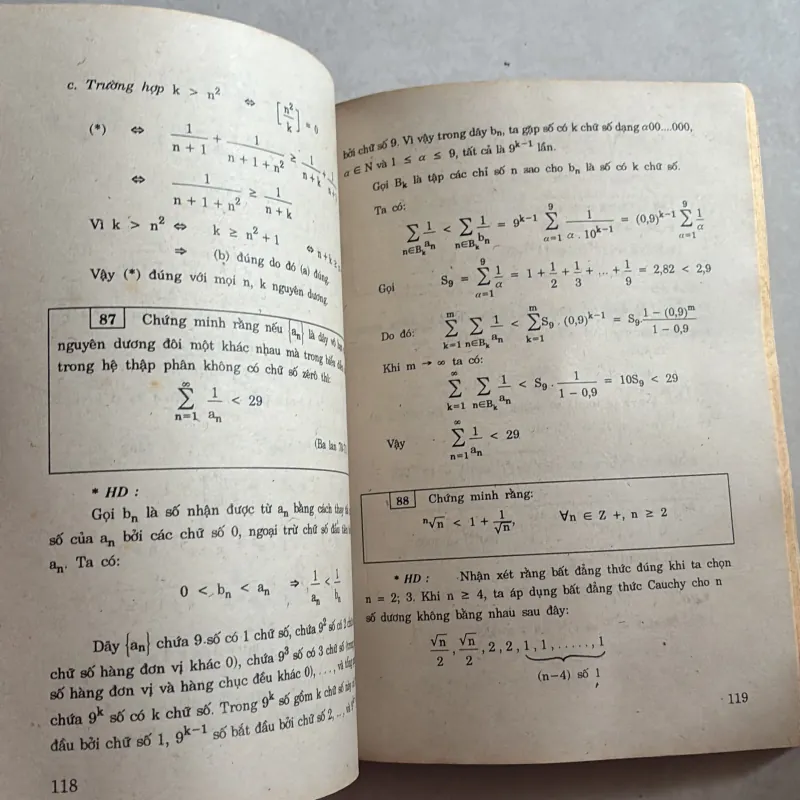 c. Trường hợp k > n² ⇔ [n²/k] = 0
(*) ⇔ 1/(n + 1) + 1/(n + 1 + n²) ≥ 1/(n + k) +
⇔ 1/(n + 1 + n²) ≥ 1/(n + k)
Vì k > n² ⇔ k ≥ n² + 1 ⇔ n + k ≥
⇒ (b) đúng do đó (a) đúng.
Vậy (*) đúng với mọi n, k nguyên dương
87 Chứng minh rằng nếu {aₙ} là dãy vô hạn
nguyên dương đôi một khác nhau mà trong biểu
trong hệ thập phân không có chữ số zêrô thì:
∑_{n=1}^{∞} 1/aₙ < 29
(Ba lan
* HD :
Gọi bₙ là số nhận được từ aₙ bằng cách thay
số của aₙ bởi các chữ số 0, ngoại trừ chữ số đầu
aₙ. Ta có:
0 < bₙ < aₙ ⇒ 1/aₙ < 1/bₙ
Dãy {aₙ} chứa 9 số có 1 chữ số, chứa 9² số có 2
chữ số hàng đơn vị khác 0), chứa 9³ số có 3 chữ số
số hàng đơn vị và hàng chục đều khác 0), ..., và
chứa 9ᵏ số có k chữ số. Trong 9ᵏ số gồm k chữ số
đầu bởi chữ số 1, 9ᵏ⁻¹ số bắt đầu bởi chữ số 2, .., và
118
bởi chữ số 9. Vì vậy trong dãy bₙ, ta gặp số có k chữ số dạng α00....000,
α ∈ N và 1 ≤ α ≤ 9, tất cả là 9ᵏ⁻¹ lần.
Gọi Bₖ là tập các chỉ số n sao cho bₙ là số có k chữ số.
Ta có:
∑_{n∈Bₖ} 1/aₙ < ∑_{n∈Bₖ} 1/bₙ = 9ᵏ⁻¹ ∑_{α=1}^{9} 1/(α . 10ᵏ⁻¹) = (0,9)ᵏ⁻¹ ∑_{α=1}^{9} 1/α
Gọi S₉ = ∑_{α=1}^{9} 1/α = 1 + 1/2 + 1/3 + ... + 1/9 = 2,82 < 2,9
Do đó: ∑_{k=1}^{m} ∑_{n∈Bₖ} 1/aₙ < ∑_{k=1}^{m} S₉ . (0,9)ᵏ⁻¹ = S₉ . (1 − (0,9)ᵐ)/(1 − 0,9)
Khi m → ∞ ta có:
∑_{k=1}^{∞} ∑_{n∈Bₖ} 1/aₙ < S₉ . 1/(1 − 0,9) = 10S₉ < 29
Vậy ∑_{n=1}^{∞} 1/aₙ < 29
88 Chứng minh rằng:
ⁿ√n < 1 + 1/√n, ∀n ∈ Z +, n ≥ 2
* HD : Nhận xét rằng bất đẳng thức đúng khi ta chọn
n = 2; 3. Khi n ≥ 4, ta áp dụng bất đẳng thức Cauchy cho n
số dương không bằng nhau sau đây:
√n/2, √n/2, 2, 2, 1, 1, ....., 1
(n−4) số 1
119